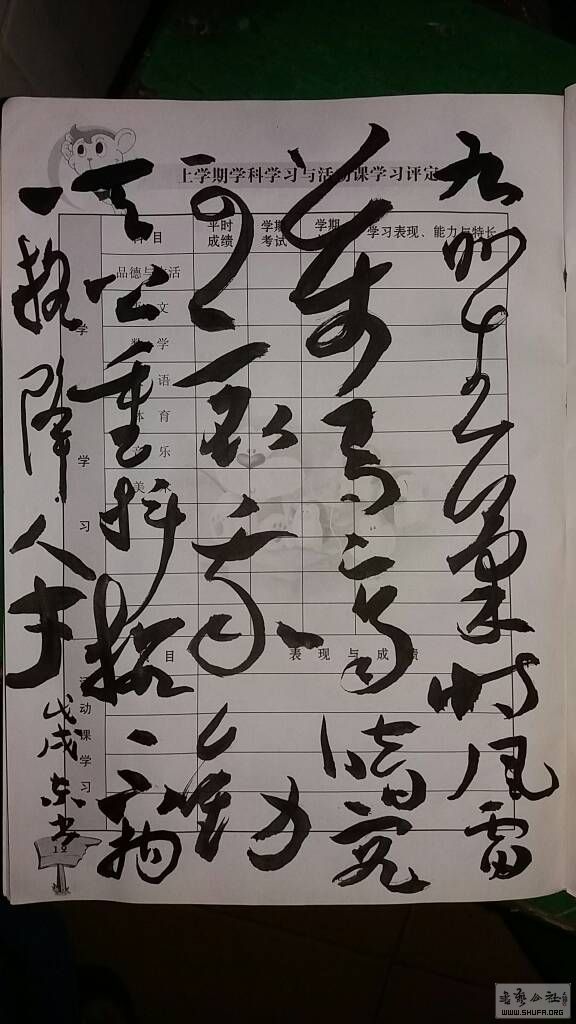 九州生氣恃风雷
萬马齐喑究
可哀我勸
天公重抖擞不拘
一格降人才
戊戌东书
上学期学科学习与活动课学习评定
目
平时成绩
学期考试
学期
学习表现、能力与特长
品德与生活
文
数学
语
体育
音乐
美
学习
目
表现与成绩
活动课学习
书艺公社
WWW.SHUFA.ORG